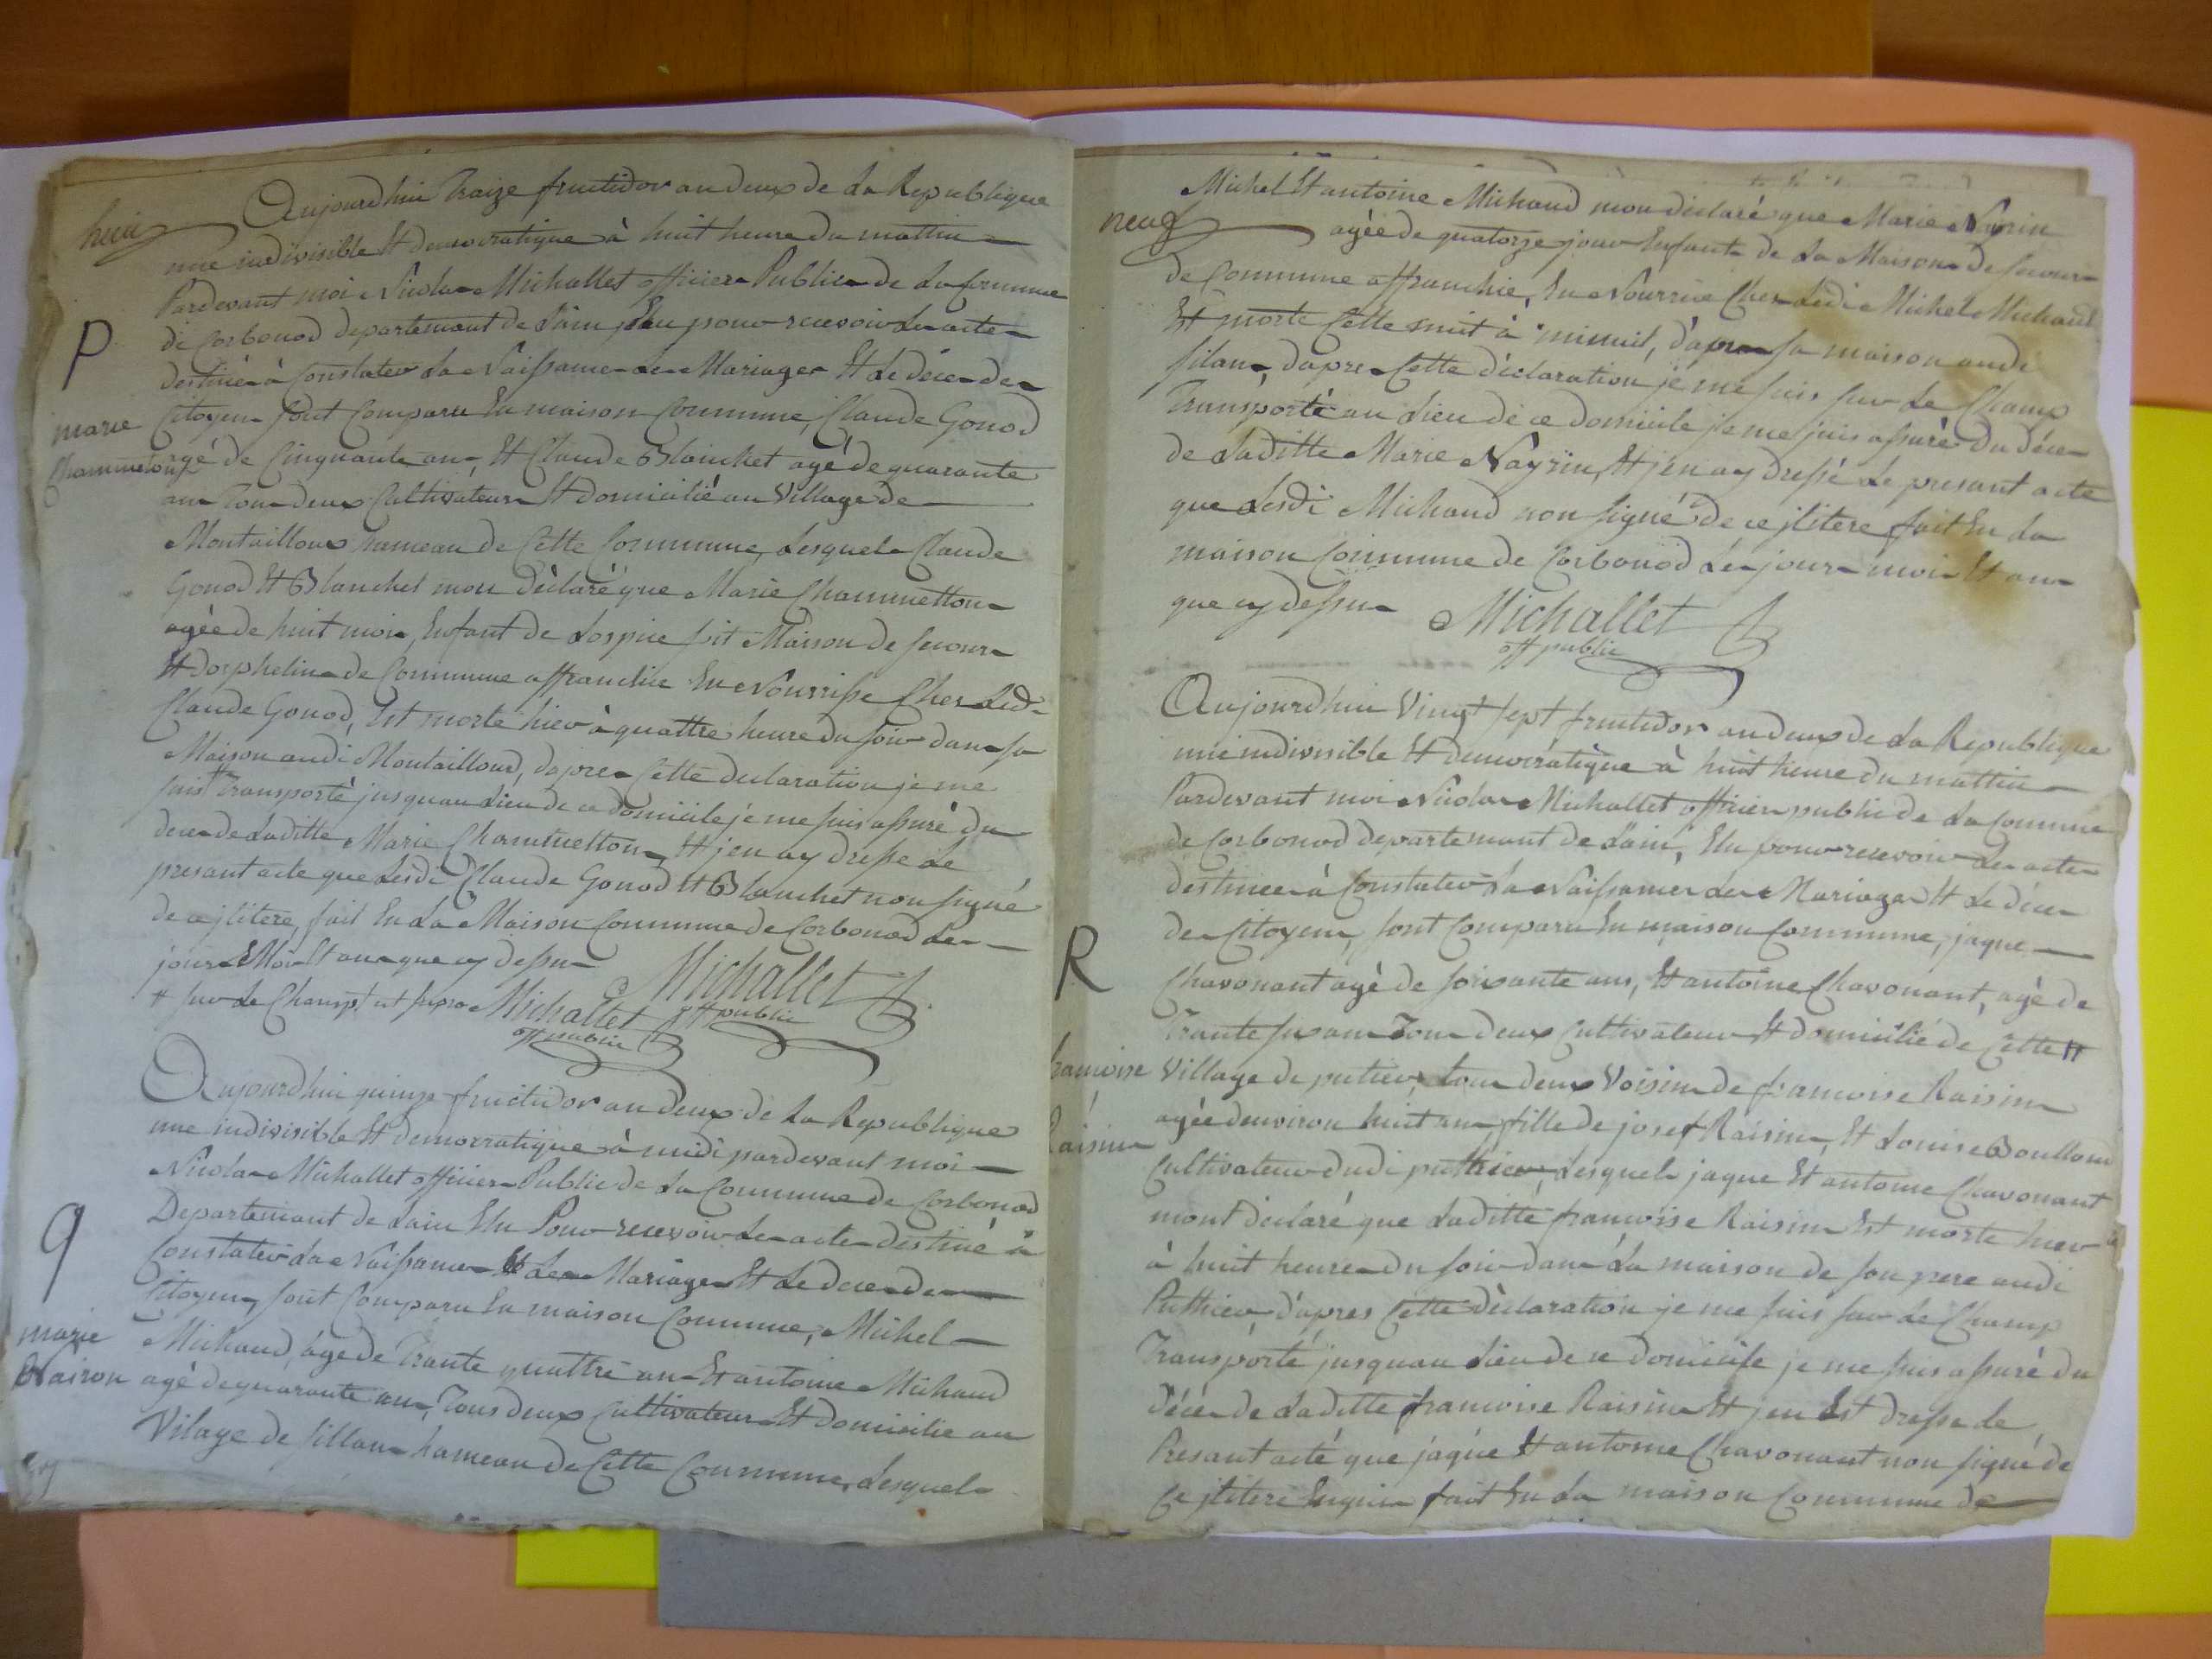 huit
Aujourdhui Traize fructidor an deux de La Republique
une indivisible Et democratique à huit heure du mattin
Pardevant moi Nicolas Michallet officier Public de La Commune
de Corbonod departemant de Lain Elu pour recevoir Les actes
P
destiné à Constater La Naissance Les Mariages Et Le déces des
Citoyens sont Comparu En maison Commune, Claude Gonod
marie
Chammeton
agé de Cinquante ans, Et Claude Blanchet agé de quarante
ans Tous deux Cultivateurs Et domicilié au Village de
Montailloux hameau de Cette Commune, Lesquels Claude
Gonod Et Blanchet mon Déclaré que Marie Chammetton
agée de huit mois, Enfant de Lospice soit Maison de secours
Et Dorphelins de Commune affranchie En Nourrisse Ches Ledi
Claude Gonod, Est morte hier à quattre heure du soir dans sa
Maison audi Montailloud, dapres Cette declaration je me
suis # Transporté jusquau Lieu de ce domicile je me suis assuré du
deces de Laditte Marie Chammetton, Et jen ay dressé Le
presant acte que Lesdi Claude Gonod Et Blanchet non signé
de ce jlitere, fait En La Maison Commune de Corbonod Les
jours Mois Et ans que cy dessus Michallet
# sur Le Champ ut supra Michallet off public
off public
Aujourdhui quinze fructidor an Deux de La Republique
une indivisible Et democratique à midi pardevant moi
Nicolas Michallet officier Public de La Commune de Corbonod
Departemant de Lain Elu Pour recevoir Les actes destiné à
9
Constater La Naissance Et Les Mariages Et Le deces des
Citoyens, sont Comparu En maison Commune, Michel
marie
Nairon
Michaud, agé de Trante quattre ans Et antoine Michaud
agé de quarante ans, Tous deux Cultivateurs Et domicilie au
Vilage de sillans hameau de Cette Commune, Lesquels
Michel Et antoine Michaud mon declaré que Marie Nayrin
neuf
agée de quatorze jours Enfant de La Maison de secours
de Commune affranchie, En Nourrice Ches Ledi Michel Michaud
Est morte Cette nuit à minuit, dapres sa maison audi
silans, dapres Cette déclaration je me suis sur Le Champ
Transporté au Lieu de ce domicile je me suis assuré du déces
de Laditte Marie Nayrin, Et jen ay dressé Le presant acte
que Lesdi Michaud non signé de ce jlitere fait En La
maison Commune de Corbonod Les jours mois Et ans
que cy dessus Michallet
off public
Aujourdhui Vingt sept fructidor an deux de La Republique
une indivisible Et democratique à huit heure du mattin
Pardevant moi Nicolas Michallet officier public de La Commune
de Corbonod departemant de Lain, Elu pour recevoir Les actes
destinée à Constater La Naissances Les Mariages Et Le déces
des Citoyens, sont Comparu En maison Commune, jaque
R
Chavonant agé de soixante ans, Et antoine Chavonant, agé de
Trante six ans Tous deux Cultivateurs Et domicilié de Cette #
francoise
Raisin
Village de putier, tous deux Voisins de francoise Raisin
agée denviron huit ans fille de josef Raisin, Et Louise Boulloud
Cultivateurs dudi puthier, Lesquels jaque Et antoine Chavonant
mont déclaré que Laditte francoise Raisin Est morte hier
à huit heures du soir dans La maison de son pere audi
Puthier, dapres Cette déclaration je me suis sur Le Champ
Transporté jusquau Lieu de ce domicile je me suis assuré du
Déces de Laditte francoise Raisin Et jen Est dresse le
Presant acté que jaque Et antoine Chavonant non signé de
Ce jlitere Enquis fait En La maison Commune de